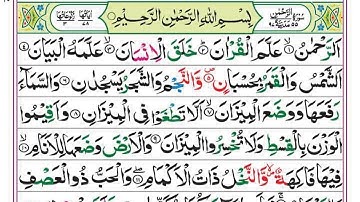 بِسْمِ اللّٰهِ الرَّحْمٰنِ الرَّحِيْمِ
اَلرَّحْمٰنُۙ عَلَّمَ الْقُرْاٰنَؕ خَلَقَ الْاِنْسَانَۙ عَلَّمَهُ الْبَيَانَ
اَلشَّمْسُ وَالْقَمَرُ بِحُسْبَانٍ وَّالنَّجْمُ وَالشَّجَرُ يَسْجُدٰنِ وَالسَّمَآءَ
رَفَعَهَا وَوَضَعَ الْمِيْزَانَۙ اَلَّا تَطْغَوْا فِى الْمِيْزَانِ وَاَقِيْمُوا
الْوَزْنَ بِالْقِسْطِ وَلَا تُخْسِرُوا الْمِيْزَانَ وَالْاَرْضَ وَضَعَهَا لِلْاَنَامِۙ
فِيْهَا فَاكِهَةٌ وَّالنَّخْلُ ذَاتُ الْاَكْمَامِۖ وَالْحَبُّ ذُو الْعَصْفِ